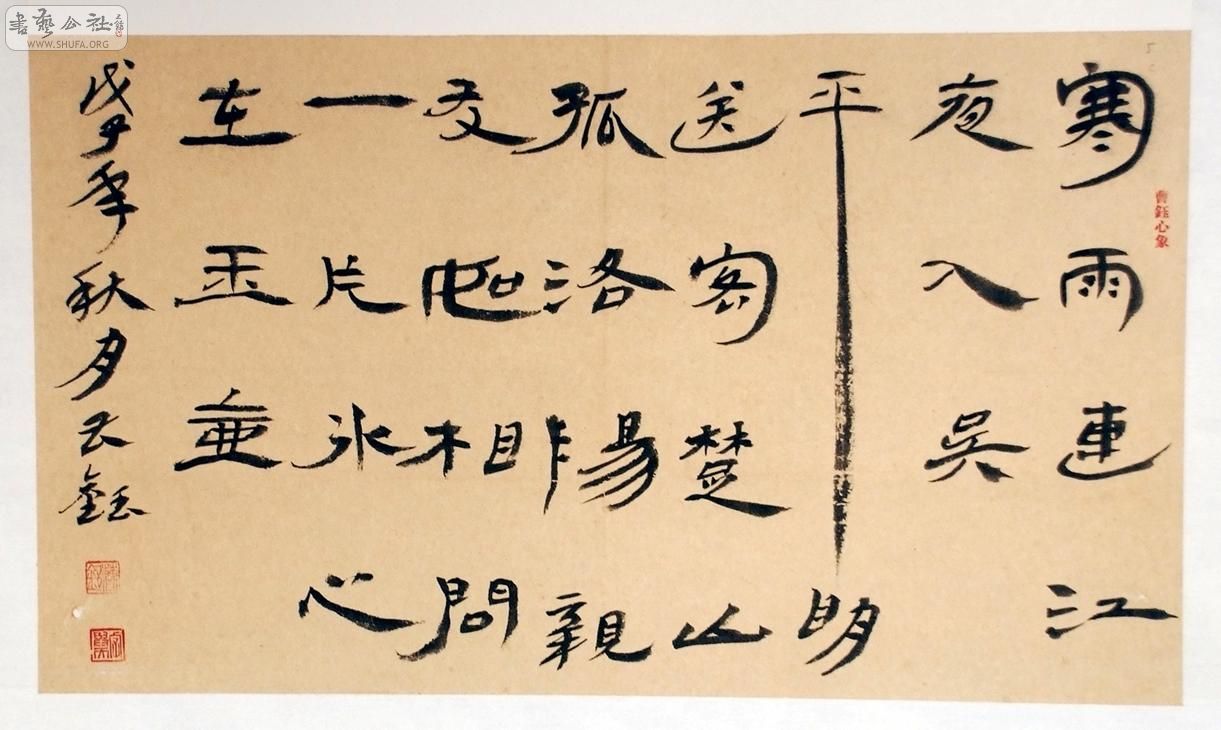 書藝公社
WWW.SHUFA.ORG
曹鈺心象
寒雨連江
夜入吴
平明
送客楚山
孤洛陽親
友如相問
一片冰心
在玉壺
戊子年秋月鈺